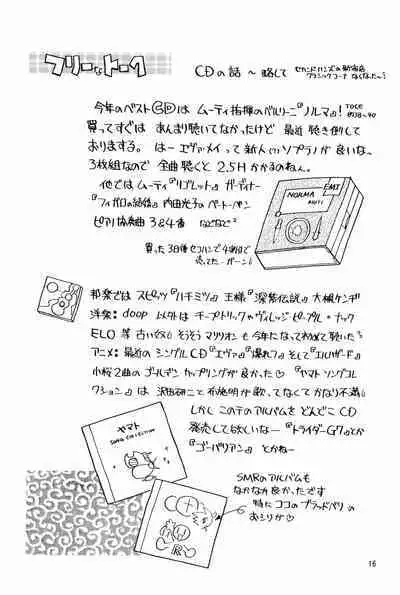 フリーなトーク
CDの話 〜 略して
セカンドハンズの新宿店
クラシックコーナーなくなった〜
今年のベストCDは ムーティ指揮のベルリーニ『ノルマ』!
TOCE
買ってすぐは あんまり聴いてなかったけど 最近 聴き倒して
おりまする。はー エヴァ・メイって新人のソプラノが良いな〜
3枚組なので 全曲聴くと 2.5Hかかるのねん。
他ではムーティ『リゴレット』 ガーディナー
『フィガロの結婚』 内田光子のベートーベン
ピアノ協奏曲 3&4番 などなど
NORMA
MUTI
EMI
買った3日後セコハンで
売ってた… ガーン!
邦楽では スピッツ『ハチミツ』 王様『深紫伝説』 大槻ケンヂ
洋楽: doop 以外は チープトリックやヴィレッジ・ピープル・ナック
ELO 等 古いぞ! そうそう マリリオンも 今年になって初めて聴いた!
アニメ: 最近の シングルCD『エヴァ』『爆れつ』 そして『エルハザード』
小桜2曲の ゴールデン カップリングが 良かった 『ヤマト ソングコレ
クション』は 沢田研二と 布施明が 歌ってなくて かなり不満!
しかし この手のアルバムを どんどこ CD
発売して欲しいな〜『トライダーG7』とか
『ゴーバリアン』 とかね〜
ヤマト
SONG COLLECTION
SMRのアルバムも
なかなか良かったです
特に ココの ブラッドベリの
おシリが
16